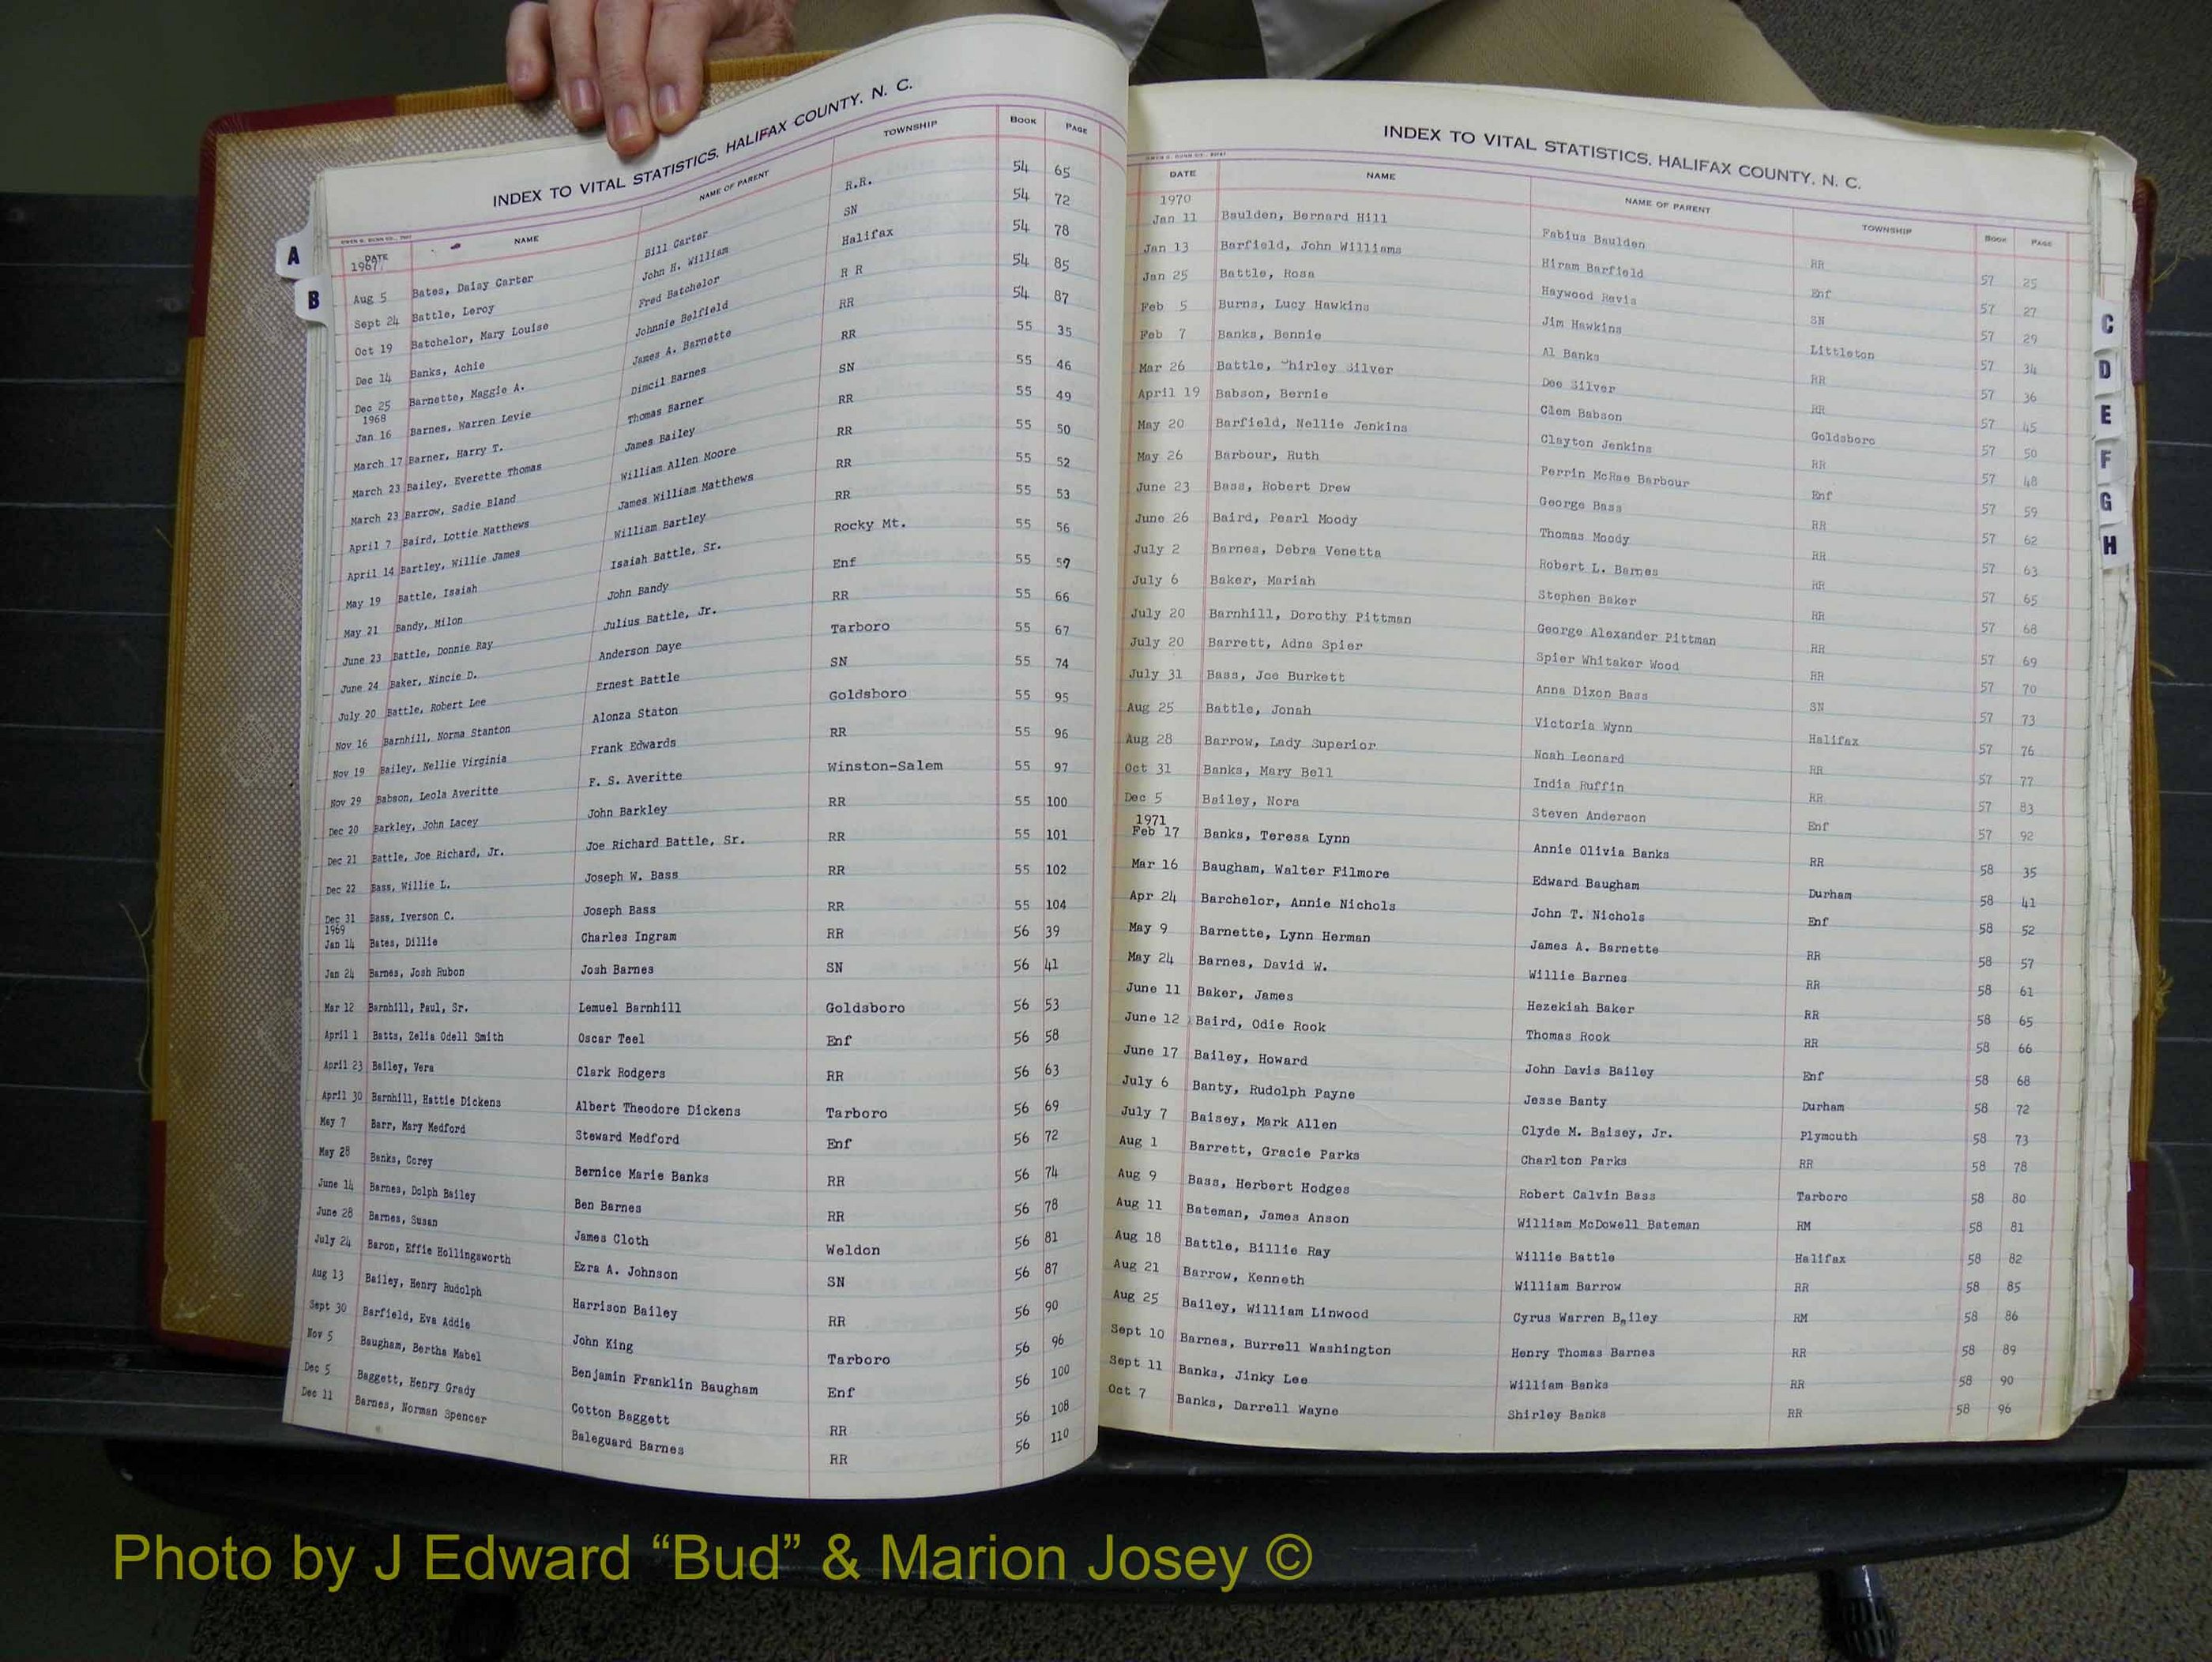 INDEX TO VITAL STATISTICS, HALIFAX COUNTY, N. C.
OWEN G. DUNN CO.
DATE NAME NAME OF PARENT TOWNSHIP BOOK PAGE
1967
Aug 5 Bates, Daisy Carter Bill Carter R.R. 54 65
Sept 24 Battle, Leroy John H. William SN 54 72
Oct 19 Batchelor, Mary Louise Fred Batchelor Halifax 54 78
Dec 14 Banks, Achie Johnnie Belfield R R 54 85
Dec 25 Barnette, Maggie A. James A. Barnette RR 54 87
1968
Jan 16 Barnes, Warren Levie Dimcil Barnes RR 55 35
March 17 Barner, Harry T. Thomas Barner SN 55 46
March 23 Bailey, Everette Thomas James Bailey RR 55 49
March 23 Barrow, Sadie Bland William Allen Moore RR 55 50
April 7 Baird, Lottie Matthews James William Matthews RR 55 52
April 14 Bartley, Willie James William Bartley RR 55 53
May 19 Battle, Isaiah Isaiah Battle, Sr. Rocky Mt. 55 56
May 21 Bandy, Milon John Bandy Enf 55 59
June 23 Battle, Donnie Ray Julius Battle, Jr. RR 55 66
June 24 Baker, Nincie D. Anderson Daye Tarboro 55 67
July 20 Battle, Robert Lee Ernest Battle SN 55 74
Nov 16 Barnhill, Norma Stanton Alonza Staton Goldsboro 55 95
Nov 19 Bailey, Nellie Virginia Frank Edwards RR 55 96
Nov 29 Babson, Leola Averitte F. S. Averitte Winston-Salem 55 97
Dec 20 Barkley, John Lacey John Barkley RR 55 100
Dec 21 Battle, Joe Richard, Jr. Joe Richard Battle, Sr. RR 55 101
Dec 22 Bass, Willie L. Joseph W. Bass RR 55 102
Dec 31 Bass, Iverson C. Joseph Bass RR 55 104
1969
Jan 14 Bates, Dillie Charles Ingram RR 56 39
Jan 24 Barnes, Josh Rubon Josh Barnes SN 56 41
Mar 12 Barnhill, Paul, Sr. Lemuel Barnhill Goldsboro 56 53
April 1 Batts, Zelia Odell Smith Oscar Teel Enf 56 58
April 23 Bailey, Vera Clark Rodgers RR 56 63
April 30 Barnhill, Hattie Dickens Albert Theodore Dickens Tarboro 56 69
May 7 Barr, Mary Medford Steward Medford Enf 56 72
May 28 Banks, Corey Bernice Marie Banks RR 56 74
June 14 Barnes, Dolph Bailey Ben Barnes RR 56 78
June 28 Barnes, Susan James Cloth Weldon 56 81
July 24 Baron, Effie Hollingsworth Ezra A. Johnson SN 56 87
Aug 13 Bailey, Henry Rudolph Harrison Bailey RR 56 90
Sept 30 Barfield, Eva Addie John King Tarboro 56 96
Nov 5 Baugham, Bertha Mabel Benjamin Franklin Baugham Enf 56 100
Dec 5 Baggett, Henry Grady Cotton Baggett RR 56 108
Dec 11 Barnes, Norman Spencer Baleguard Barnes RR 56 110
A
B
INDEX TO VITAL STATISTICS, HALIFAX COUNTY, N. C.
OWEN G. DUNN CO.
DATE NAME NAME OF PARENT TOWNSHIP BOOK PAGE
1970
Jan 11 Baulden, Bernard Hill Fabius Baulden RR 57 25
Jan 13 Barfield, John Williams Hiram Barfield Enf 57 27
Jan 25 Battle, Rosa Haywood Revis SN 57 29
Feb 5 Burns, Lucy Hawkins Jim Hawkins Littleton 57 34
Feb 7 Banks, Bennie Al Banks RR 57 36
Mar 26 Battle, Shirley Silver Dee Silver RR 57 45
April 19 Babson, Bernie Clem Babson Goldsboro 57 50
May 20 Barfield, Nellie Jenkins Clayton Jenkins RR 57 48
May 26 Barbour, Ruth Perrin McRae Barbour Enf 57 59
June 23 Bass, Robert Drew George Bass RR 57 62
June 26 Baird, Pearl Moody Thomas Moody RR 57 63
July 2 Barnes, Debra Venetta Robert L. Barnes RR 57 65
July 6 Baker, Mariah Stephen Baker RR 57 68
July 20 Barnhill, Dorothy Pittman George Alexander Pittman RR 57 69
July 20 Barrett, Adna Spier Spier Whitaker Wood RR 57 70
July 31 Bass, Joe Burkett Anna Dixon Bass SN 57 73
Aug 25 Battle, Jonah Victoria Wynn Halifax 57 76
Aug 28 Barrow, Lady Superior Noah Leonard RR 57 77
Oct 31 Banks, Mary Bell India Ruffin RR 57 83
Dec 5 Bailey, Nora Steven Anderson Enf 57 92
1971
Feb 17 Banks, Teresa Lynn Annie Olivia Banks RR 58 35
Mar 16 Baugham, Walter Filmore Edward Baugham Durham 58 41
Apr 24 Barchelor, Annie Nichols John T. Nichols Enf 58 52
May 9 Barnette, Lynn Herman James A. Barnette RR 58 57
May 24 Barnes, David W. Willie Barnes RR 58 61
June 11 Baker, James Hezekiah Baker RR 58 65
June 12 Baird, Odie Rook Thomas Rook RR 58 66
June 17 Bailey, Howard John Davis Bailey Enf 58 68
July 6 Banty, Rudolph Payne Jesse Banty Durham 58 72
July 7 Baisey, Mark Allen Clyde M. Baisey, Jr. Plymouth 58 73
Aug 1 Barrett, Gracie Parks Charlton Parks RR 58 78
Aug 9 Bass, Herbert Hodges Robert Calvin Bass Tarboro 58 80
Aug 11 Bateman, James Anson William McDowell Bateman RM 58 81
Aug 18 Battle, Billie Ray Willie Battle Halifax 58 82
Aug 21 Barrow, Kenneth William Barrow RR 58 85
Aug 25 Bailey, William Linwood Cyrus Warren Bailey RM 58 86
Sept 10 Barnes, Burrell Washington Henry Thomas Barnes RR 58 89
Sept 11 Banks, Jinky Lee William Banks RR 58 90
Oct 7 Banks, Darrell Wayne Shirley Banks RR 58 96
C
D
E
F
G
H
Photo by J Edward “Bud” & Marion Josey ©